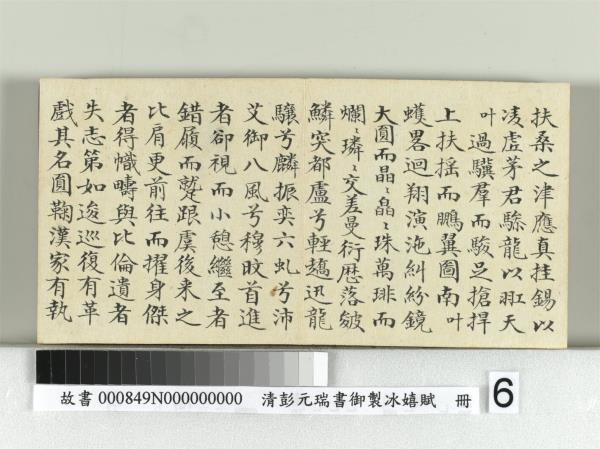 扶桑之津應真挂錫以
凌虛茅君驂龍以羾天
叶過驥羣而駿足搶捍
上扶搖而鵬翼圖南叶
蠖畧迴翔演迤糾紛鏡
大圓而晶〻皛〻珠萬琲而
爛〻璘〻交差曼衍歷落皴
鱗突都盧兮輕趫迅龍
驤兮麟振奕六虬兮沛
艾御八風兮穆旼首進
者卻視而小憩繼至者
錯履而蹵踉虞後来之
比肩更前往而擢身傑
者得幟疇與比倫遺者
失志第如逡巡復有革
戲其名圓鞠漢家有執
故書 000849N000000000 清彭元瑞書御製冰嬉賦 冊
6